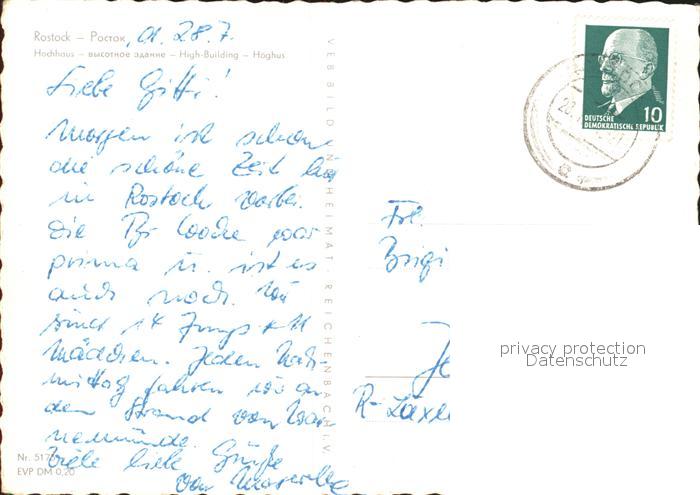 Rostock – Росток, 01.28.7.
Hochhaus – высотное здание – High-Building – Höghus
Liebe Gitti!
Morgen ist schon
die schöne Zeit hier
in Rostock vorbei.
Die Woche war
prima u. ist es
auch noch. Wir
sind 14 Jungs + 11
Mädchen. Jeden Nach-
mittag fahren wir an
den Strand von War
nemünde.
Viele liebe Grüße
von
Nr. 517
EVP DM 0,20
VEB BILD HEIMAT · REICHENBACH I. V.
DEUTSCHE
DEMOKRATISCHE REPUBLIK
10
Frl.
Brigi
Je
R-
privacy protection
Datenschutz